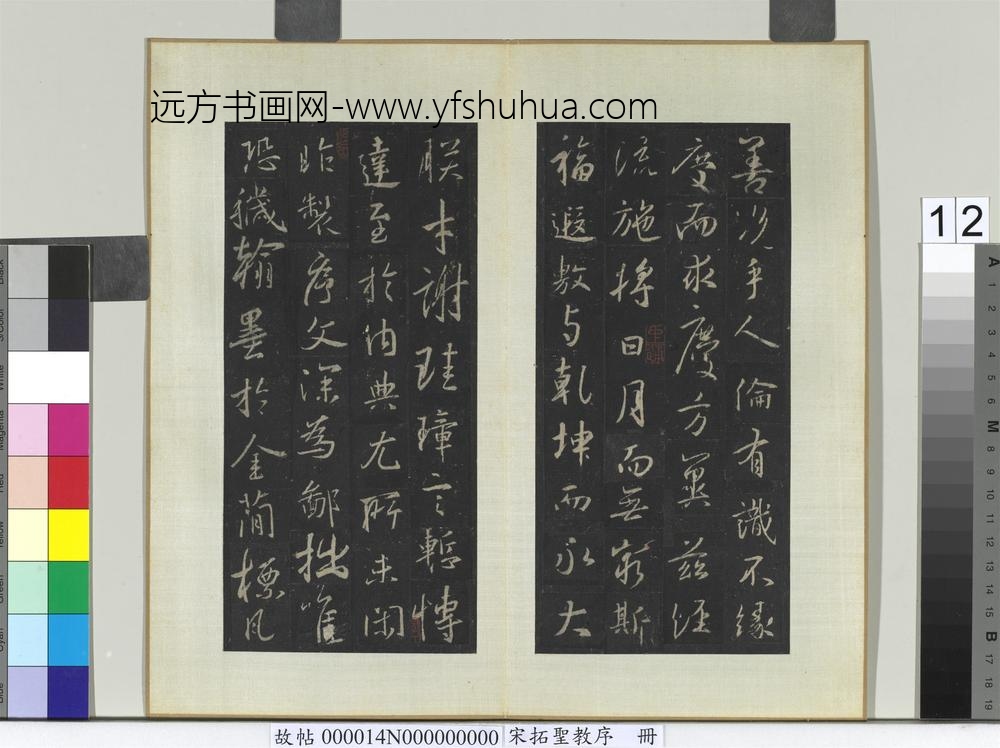 远方书画网-www.yfshuhua.com
善况乎人倫有識不緣
慶而求慶方冀茲經
流施將日月而無窮斯
福遐敷与乾坤而永大
朕才謝珪璋言慙博
達至於内典尤所未閑
昨製序文深為鄙拙唯
恐穢翰墨於金蕳標瓦
12
故帖 000014N000000000 宋拓聖教序 冊
Black
3/Color
White
Magenta
Red
Yellow
Green
Cyan
Blue
A
1
2
3
4
5
6
M
8
9
10
11
12
13
14
15
B
17
18
19